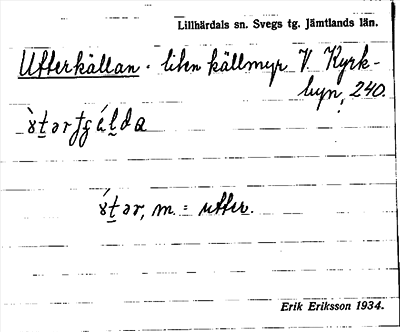 Lillhärdals sn. Svegs tg. Jämtlands län.
Utterkällan. liten källmyr V. Kyrk-
byn, 240.
m. = utter.
Erik Eriksson 1934.